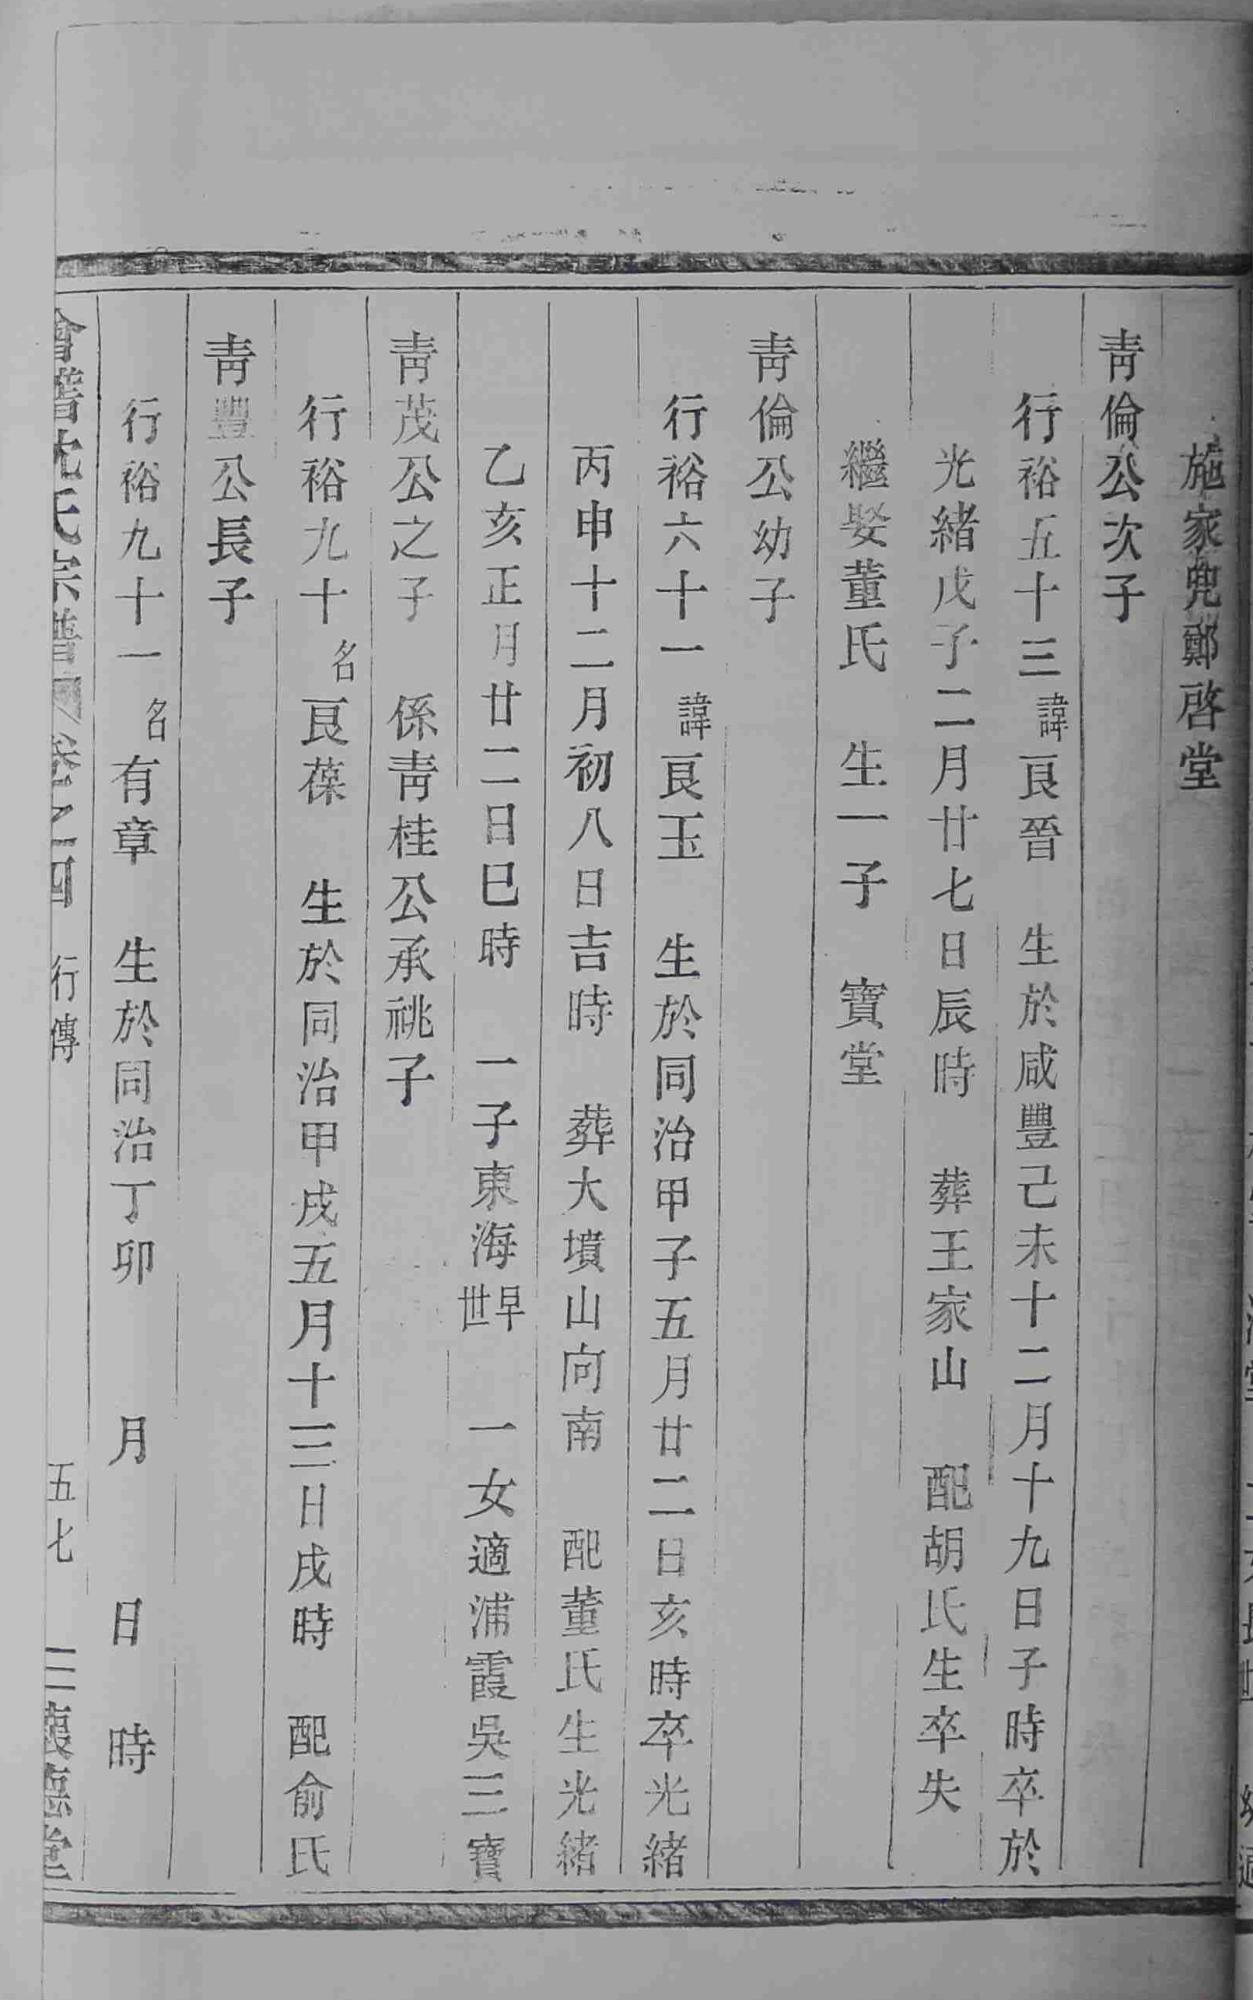 施家兜鄭啓堂
青倫公次子
行裕五十三諱艮晉　生於咸豐己未十二月十九日子時卒於
光緒戊子二月廿七日辰時　葬王家山　配胡氏生卒失
繼娶董氏　生一子　寶堂
青倫公幼子
行裕六十一諱艮玉　生於同治甲子五月廿二日亥時卒光緒
丙申十二月初八日吉時　葬大墳山向南　配董氏生光緒
乙亥正月廿二日巳時　一子東海早世　一女適浦霞吳三寶
青茂公之子　係青桂公承祧子
行裕九十名艮葆　生於同治甲戌五月十三日戌時　配俞氏
青豐公長子
行裕九十一名有章　生於同治丁卯　月　日　時
會稽沈氏宗譜　卷之四　行傳　五七　三懷德堂